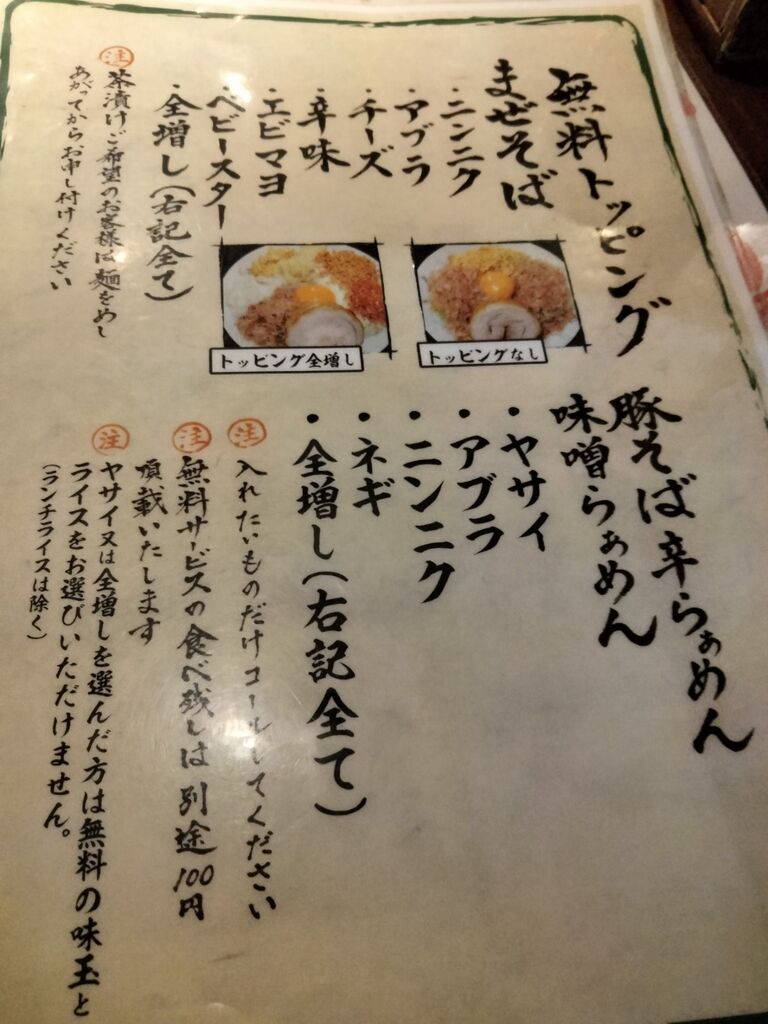 無料トッピング
まぜそば
・ニンニク
・アブラ
・チーズ
・辛味
・エビマヨ
・ベビースター
・全増し(右記全て)
注 茶漬けご希望のお客様は麺をめし
あがってからお申し付けください
トッピング全増し
トッピングなし
豚そば 辛らぁめん
味噌らぁめん
・ヤサイ
・アブラ
・ニンニク
・ネギ
・全増し(右記全て)
注 入れたいものだけコールしてください
注 無料サービスの食べ残しは別途100円
頂載いたします
注 ヤサイ又は全増しを選んだ方は無料の味玉と
ライスをお選びいただけません。
(ランチライスは除く)